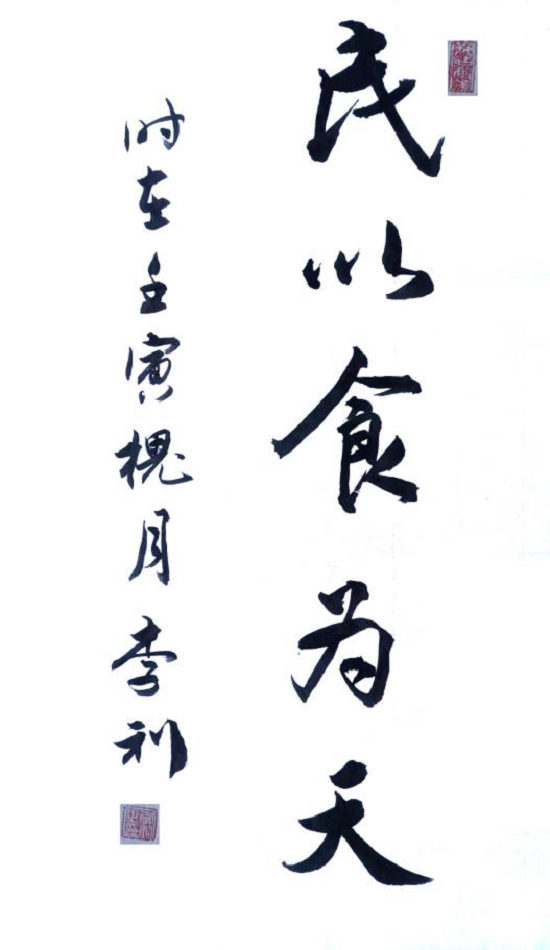 民以食为天
时在壬寅槐月李利